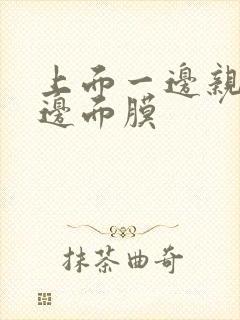 上而一邊親
邊而膜
抹茶曲奇